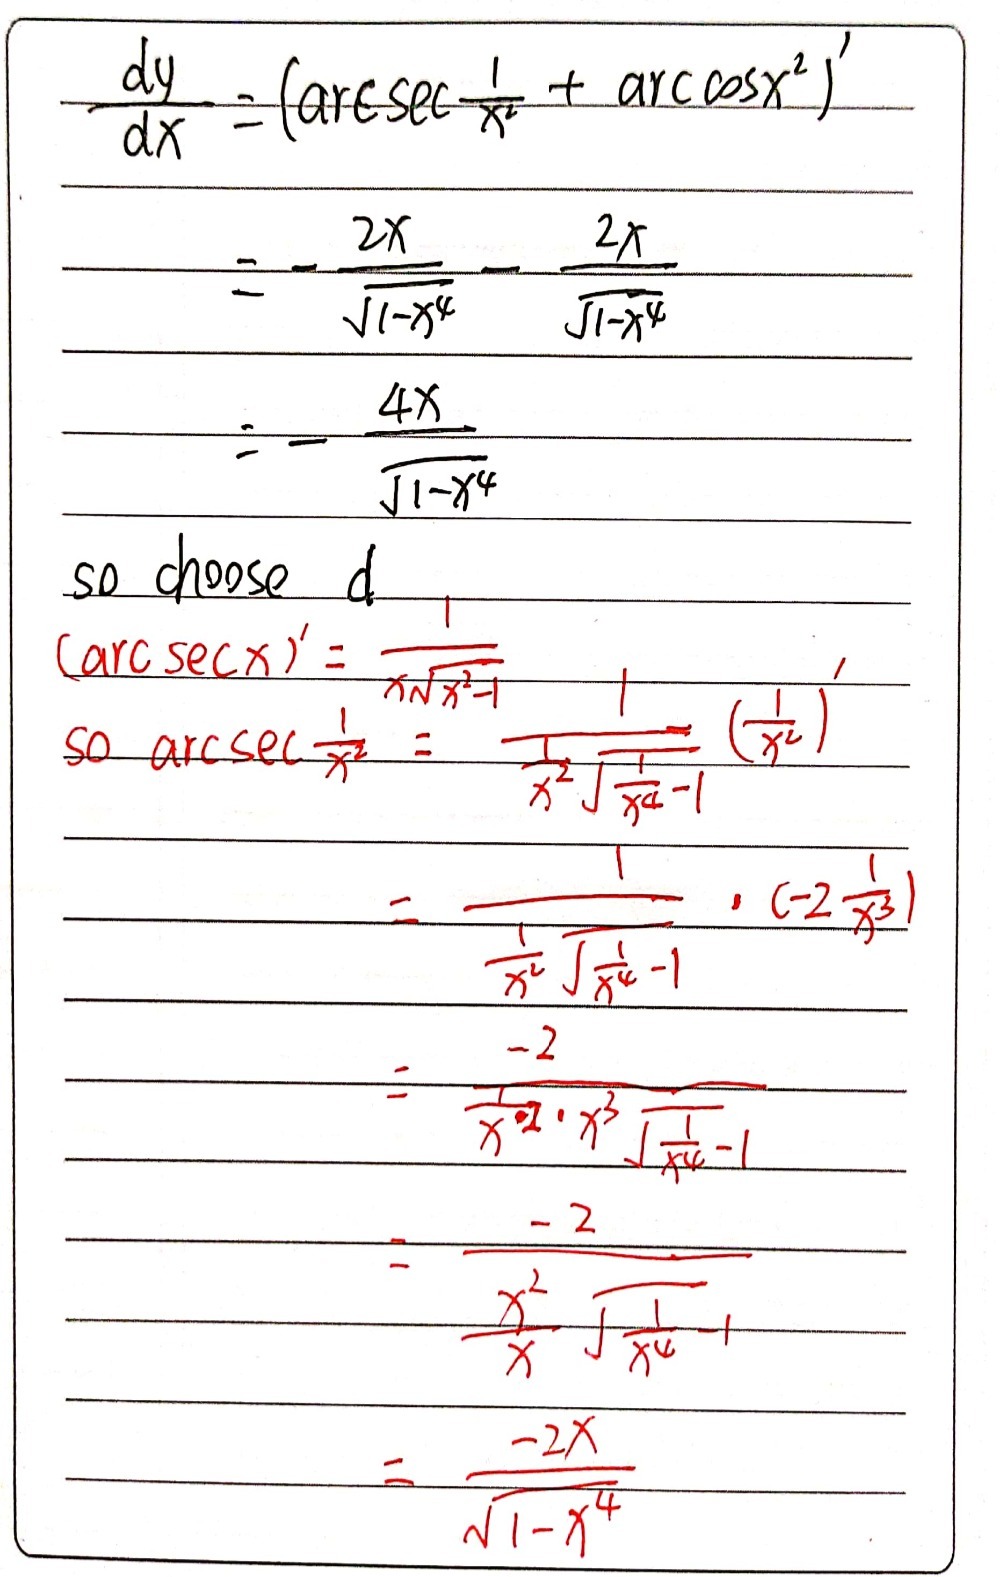 dy/dx = (arcsec 1/x² + arccosx²)'
= - 2x/√(1-x⁴) - 2x/√(1-x⁴)
= - 4x/√(1-x⁴)
so choose d
(arcsecx)' = 1/(x√(x²-1))
so arcsec 1/x² = 1/(1/x² √(1/x⁴ -1)) (1/x²)'
= 1/(1/x² √(1/x⁴ -1)) · (-2 1/x³)
= -2/(1/x² · x³ √(1/x⁴ -1))
= -2/(x²/x √(1/x⁴ -1))
= -2x/√(1-x⁴)